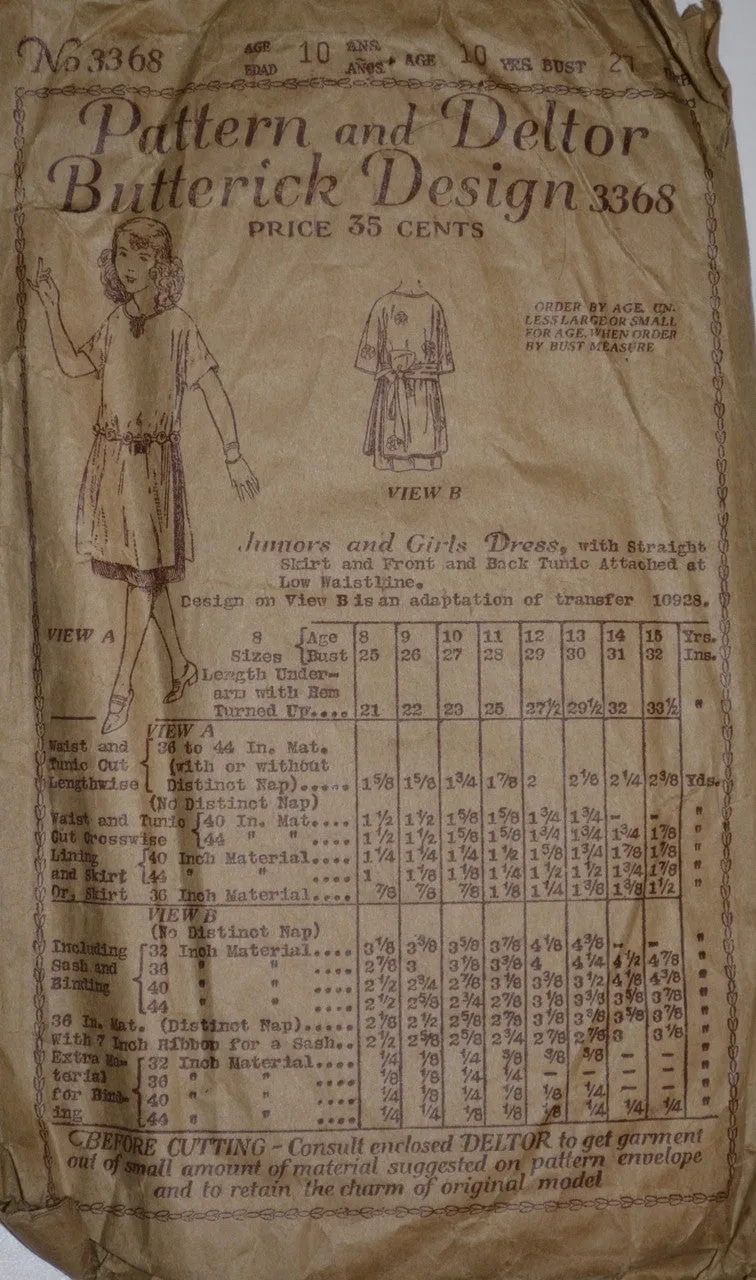 No 3368 AGE EDAD 10 ANS. AÑOS. AGE 10 YRS BUST
Pattern and Deltor
Butterick Design 3368
PRICE 35 CENTS
ORDER BY AGE, UN-
LESS LARGE OR SMALL
FOR AGE, WHEN ORDER
BY BUST MEASURE
VIEW B
Juniors and Girls Dress, with Straight
Skirt and Front and Back Tunic Attached at
Low Waistline.
Design on View B is an adaptation of transfer 10928.
VIEW A
8 { Age 8 9 10 11 12 13 14 15 Yrs.
Sizes { Bust 25 26 27 28 29 30 31 32 Ins.
Length Under-
arm with Hem
Turned Up.... 21 22 23 25 27½ 29½ 32 33½ "
VIEW A
Waist and { 36 to 44 In. Mat.
Tunic Cut { (with or without
Lengthwise { Distinct Nap)..... 1⅝ 1⅝ 1¾ 1⅞ 2 2⅛ 2¼ 2⅜ Yds.
(No Distinct Nap)
Waist and Tunic { 40 In. Mat.... 1½ 1½ 1⅝ 1⅝ 1¾ 1¾ - - "
Cut Crosswise { 44 " " .... 1½ 1½ 1⅝ 1⅝ 1¾ 1¾ 1¾ 1⅞ "
Lining { 40 Inch Material.... 1¼ 1¼ 1¼ 1½ 1⅝ 1¾ 1⅞ 1⅞ "
and Skirt { 44 " " .... 1 1⅛ 1⅛ 1¼ 1½ 1½ 1¾ 1⅞ "
Or, Skirt 36 Inch Material.... ⅞ ⅞ ⅞ 1⅛ 1¼ 1⅜ 1⅜ 1½ "
VIEW B
(No Distinct Nap)
Including { 32 Inch Material.... 3⅛ 3⅜ 3⅝ 3⅞ 4⅛ 4⅜ - - "
Sash and { 36 " " .... 2⅞ 3 3⅛ 3⅜ 4 4¼ 4½ 4⅞ "
Binding { 40 " " .... 2½ 2¾ 2⅞ 3⅛ 3⅜ 3½ 4⅛ 4⅜ "
{ 44 " " .... 2½ 2⅝ 2¾ 2⅞ 3⅛ 3⅜ 3⅝ 3⅞ "
36 In. Mat. (Distinct Nap)..... 2⅛ 2½ 2⅝ 2⅞ 3⅛ 3⅜ 3⅝ 3⅞ "
With 7 Inch Ribbon for a Sash.. 2½ 2⅝ 2⅝ 2¾ 2⅞ 2⅞ 3 3⅛ "
Extra Ma- { 32 Inch Material ¼ ⅛ ¼ ⅜ ⅜ ⅜ - - "
terial { 36 " " .... ⅛ ⅛ ¼ ¼ - - - - "
for Bind- { 40 " " .... ¼ ⅛ ¼ ⅛ ⅛ ¼ - - "
ing { 44 " " .... ¼ ¼ ⅛ ⅛ ⅛ ¼ ¼ ¼ "
BEFORE CUTTING - Consult enclosed DELTOR to get garment
out of small amount of material suggested on pattern envelope
and to retain the charm of original model